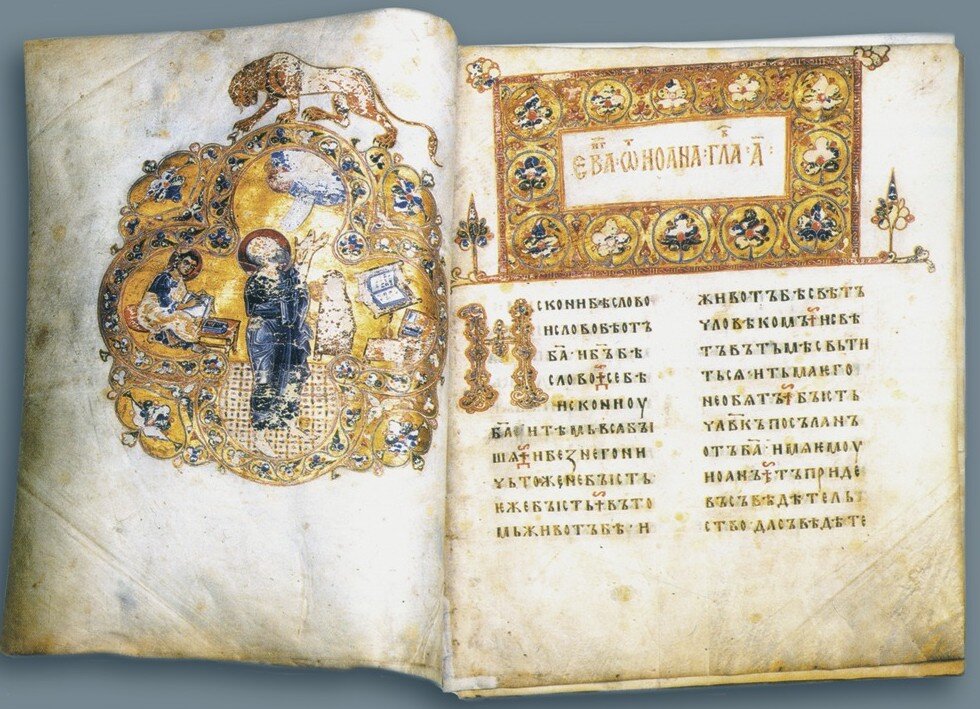 ЕВА҃·ѠИОАНА·ГЛА·А҃:
ИСКОНИБѢСЛОВО
ИСЛОВОБѢОТЪ
БА҃·ИБЪ҃БѢ
СЛОВО·СЕБѢ
ИСКОНИОУ
БА҃·ИТѢМЬВСАБЫ
ШѦ·ИБЕЗНЕГОНИ
ЧЬТОЖЕНЕБЫСТЬ
ЕЖЕБЫСТЬ·ВЪТО
МЬЖИВОТЪБѢ·И
ЖИВОТЪБѢСВѢТЪ
ЧЛОВѢКОМЪ·ИСВѢ
ТЪВЪТЬМѢСВЬТИ
ТЬСѦ·ИТЬМАѤГО
НЕОБѦТЪ·БЫСТЬ
ЧЛВ҃КЪПОСЪЛАНЪ
ОТЪБА҃·ИМѦѤМОУ
ИОАНЪ·ТЪПРИДЕ
ВЪСЪВѢДѢТЕЛЬ
СТВО·ДАСЪВѢДѢТЕ